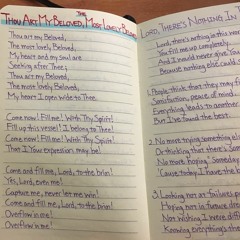 THE
THOU ART MY BELOVED, MOST LOVELY BELOVED
Thou art my Beloved,
The most lovely Beloved,
My heart and my soul are
Seeking after Thee;
Thou art my Beloved,
The most lovely Beloved,
My heart I open wide to Thee.
Come now! Fill me! With Thy Spirit!
Fill up this vessel! I belong to Thee!
Come now! Fill me! With Thy Spirit!
That I Your expression may be!
Come and fill me, Lord, to the brim!
Yes, Lord, even me!
Capture me, never let me win!
Come and fill me, Lord, to the brim!
Overflow in me!
Overflow in me!
LORD, THERE'S NOTHING IN
Lord, there's nothing in this
You fill me up completely
And I would never give You
Because nothing could
1. People think that they may
Satisfaction, peace of mind,
Everything leads to another
But I've found the best
2. No more trying something
Or thinking that there's
No more hoping "Someday
'Cause today I have the
3. Looking not at failures
Hoping not in future
Not wishing I were
Knowing everything's